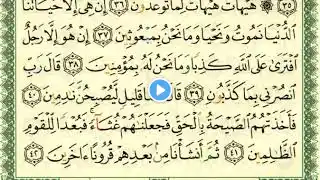 ٣٥ ۞ هَيْهَاتَ هَيْهَاتَ لِمَا تُوعَدُونَ ٣٦ إِنْ هِيَ إِلَّا حَيَاتُنَا
ٱلدُّنْيَا نَمُوتُ وَنَحْيَا وَمَا نَحْنُ بِمَبْعُوثِينَ ٣٧ إِنْ هُوَ إِلَّا رَجُلٌ
ٱفْتَرَىٰ عَلَى ٱللَّهِ كَذِبًا وَمَا نَحْنُ لَهُۥ بِمُؤْمِنِينَ ٣٨ قَالَ رَبِّ
ٱنصُرْنِى بِمَا كَذَّبُونِ ٣٩ قَالَ عَمَّا قَلِيلٍ لَّيُصْبِحُنَّ نَٰدِمِينَ ٤٠
فَأَخَذَتْهُمُ ٱلصَّيْحَةُ بِٱلْحَقِّ فَجَعَلْنَٰهُمْ غُثَآءً فَبُعْدًا لِّلْقَوْمِ
ٱلظَّٰلِمِينَ ٤١ ثُمَّ أَنشَأْنَا مِنۢ بَعْدِهِمْ قُرُونًا ءَاخَرِينَ ٤٢